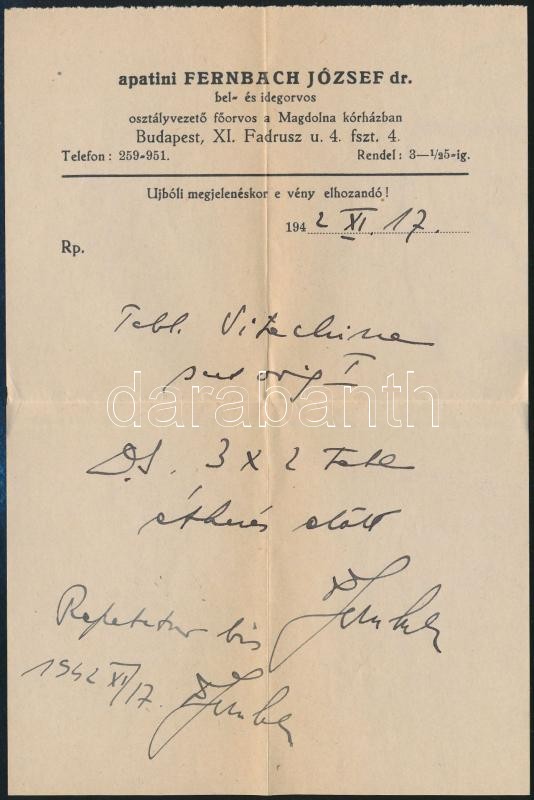 apatini FERNBACH JÓZSEF dr.
bel- és idegorvos
osztályvezető főorvos a Magdolna kórházban
Budapest, XI. Fadrusz u. 4. fszt. 4.
Telefon : 259-951. Rendel : 3—1/25-ig.
Ujbóli megjelenéskor e vény elhozandó !
1942 XI. 17.
Rp.
Tabl.
orig I
darabanth
DS. 3 x 2 Tabl
étkezés előtt
Repetetur bis
1942 XI/17.